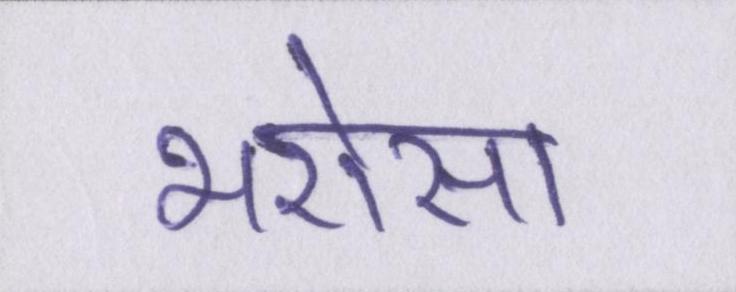 भरोसा